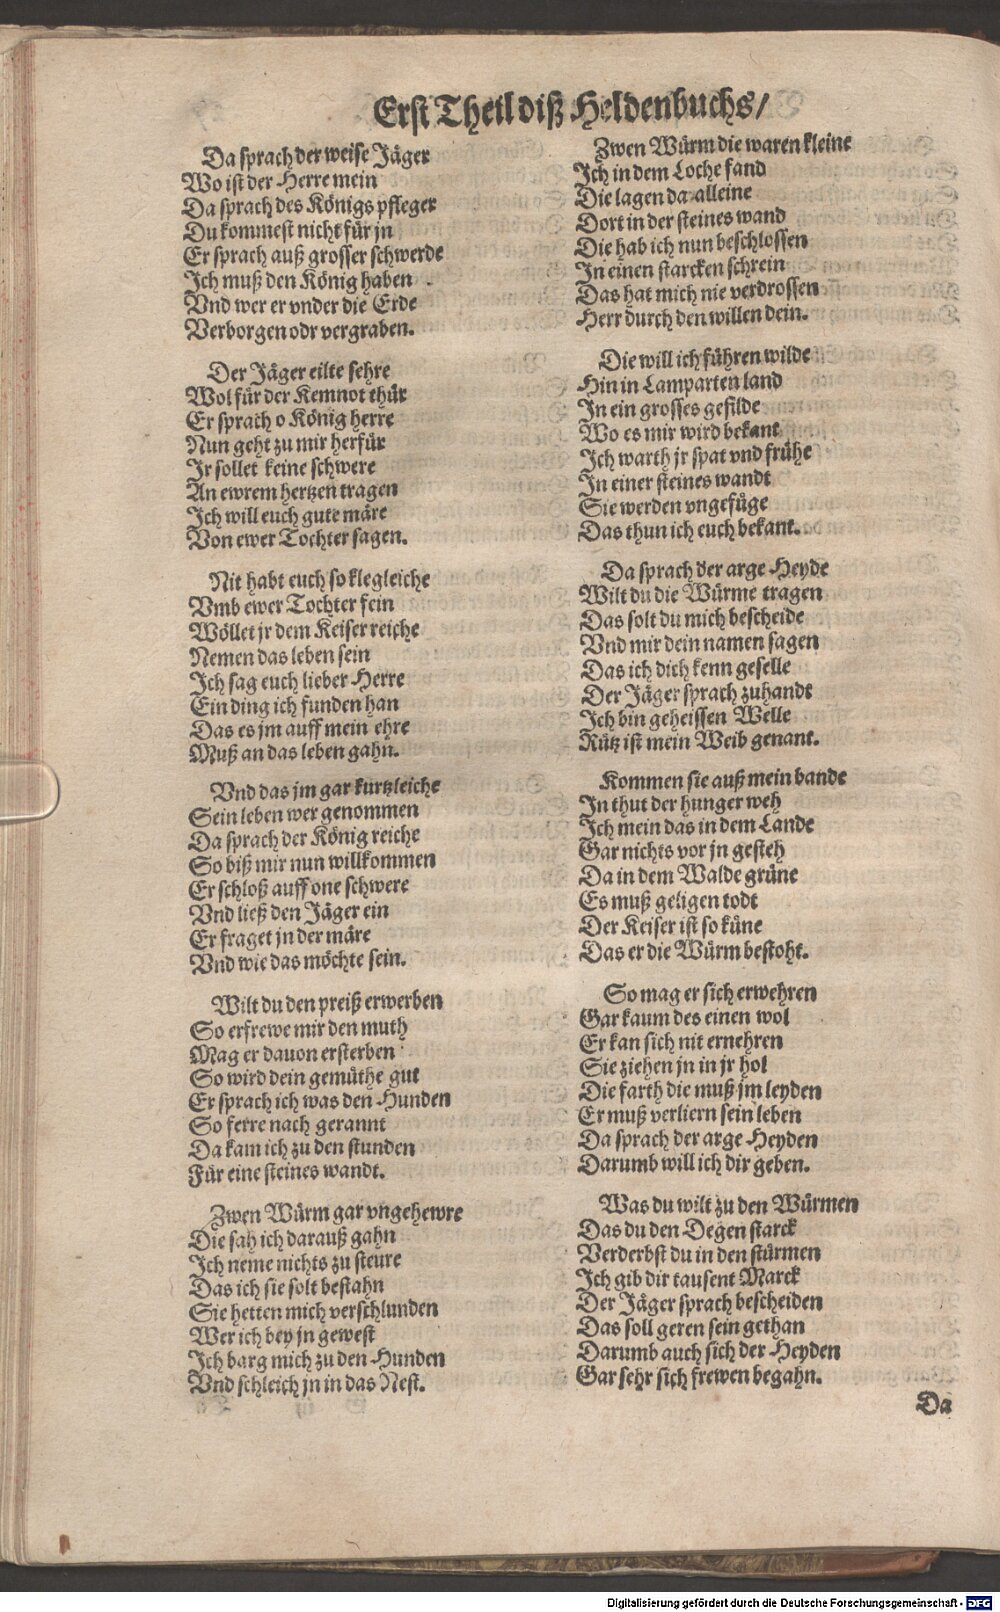 Erst Theil diß Heldenbuchs/
Da sprach der weise Jäger
Wo ist der Herre mein
Da sprach des Königs pfleger
Du kommest nicht für jn
Er sprach auß grosser schwerde
Ich muß den König haben
Vnd wer er vnder die Erde
Verborgen odr vergraben.
Der Jäger eilte sehre
Wol für der Kemnot thür
Er sprach o König herre
Nun geht zu mir herfür
Ir sollet keine schwere
An ewrem hertzen tragen
Ich will euch gute märe
Von ewer Tochter sagen.
Nit habt euch so klegleiche
Vmb ewer Tochter fein
Wöllet jr dem Keiser reiche
Nemen das leben sein
Ich sag euch lieber Herre
Ein ding ich funden han
Das es jm auff mein ehre
Muß an das leben gahn.
Vnd das jm gar kurtzleiche
Sein leben wer genommen
Da sprach der König reiche
So biß mir nun willkommen
Er schloß auff one schwere
Vnd ließ den Jäger ein
Er fraget jn der märe
Vnd wie das möchte sein.
Wilt du den preiß erwerben
So erfrewe mir den muth
Mag er dauon ersterben
So wird dein gemüthe gut
Er sprach ich was den Hunden
So ferre nach gerannt
Da kam ich zu den stunden
Für eine steines wandt.
Zwen Würm gar vngehewre
Die sah ich darauß gahn
Ich neme nichts zu steure
Das ich sie solt bestahn
Sie hetten mich verschlunden
Wer ich bey jn gewest
Ich barg mich zu den Hunden
Vnd schleich jn in das Nest.
Zwen Würm die waren kleine
Ich in dem Loche fand
Die lagen da alleine
Dort in der steines wand
Die hab ich nun beschlossen
In einen starcken schrein
Das hat mich nie verdrossen
Herr durch den willen dein.
Die will ich führen wilde
Hin in Lamparten land
In ein grosses gefilde
Wo es mir wird bekant
Ich warth jr spat vnd frühe
In einer steines wandt
Sie werden vngefüge
Das thun ich euch bekant.
Da sprach der arge Heyde
Wilt du die Würme tragen
Das solt du mich bescheide
Vnd mir dein namen sagen
Das ich dich kenn geselle
Der Jäger sprach zuhandt
Ich bin geheissen Welle
Rütz ist mein Weib genant.
Kommen sie auß mein bande
In thut der hunger weh
Ich mein das in dem Lande
Gar nichts vor jn gesteh
Da in dem Walde grüne
Es muß geligen todt
Der Keiser ist so küne
Das er die Würm bestoht.
So mag er sich erwehren
Gar kaum des einen wol
Er kan sich nit ernehren
Sie ziehen jn in jr hol
Die farth die muß jm leyden
Er muß verliern sein leben
Da sprach der arge Heyden
Darumb will ich dir geben.
Was du wilt zu den Würmen
Das du den Degen starck
Verderbst du in den stürmen
Ich gib dir tausent Marck
Der Jäger sprach bescheiden
Das soll geren sein gethan
Darumb auch sich der Heyden
Gar sehr sich frewen begahn.
Da
Digitalisierung gefördert durch die Deutsche Forschungsgemeinschaft - DFG